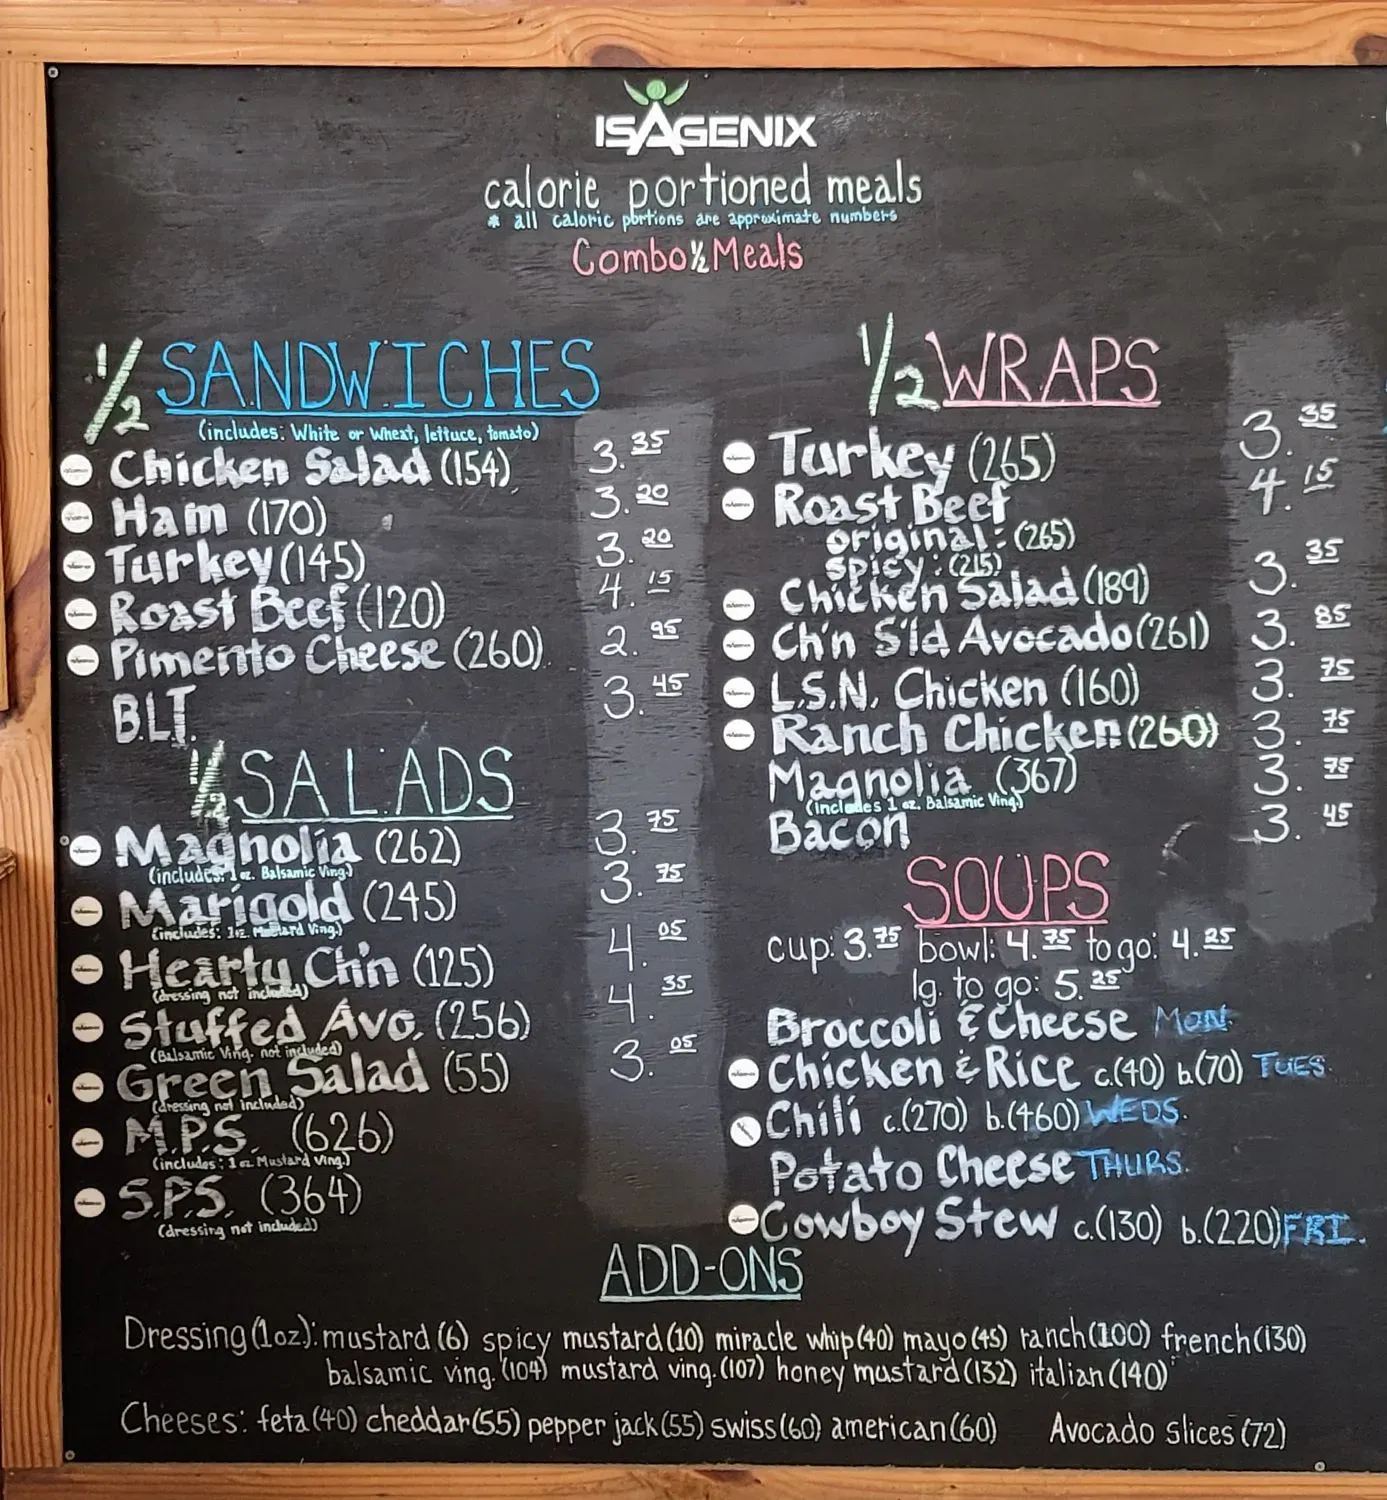 ISAGENIX
calorie portioned meals
* all caloric portions are approximate numbers
Combo ½ Meals
1/2 SANDWICHES
(includes: White or Wheat, lettuce, tomato)
Chicken Salad (154) 3.35
Ham (170) 3.20
Turkey (145) 3.20
Roast Beef (120) 4.15
Pimento Cheese (260) 2.95
B.L.T. 3.45
1/2 SALADS
Magnolia (262) 3.75
(includes: 1 oz. Balsamic Ving.)
Marigold (245) 3.75
(includes: 1oz. Mustard Ving.)
Hearty Ch'n (125) 4.05
(dressing not included)
Stuffed Avo. (256) 4.35
(Balsamic Ving. not included)
Green Salad (55) 3.05
(dressing not included)
M.P.S. (626)
(includes: 1 oz Mustard Ving.)
S.P.S. (364)
(dressing not included)
1/2 WRAPS
Turkey (265) 3.35
Roast Beef 4.15
original: (265)
spicy: (215)
Chicken Salad (189) 3.35
Ch'n S'ld Avocado (261) 3.85
L.S.N. Chicken (160) 3.75
Ranch Chicken (260) 3.75
Magnolia (367) 3.75
(includes 1 oz. Balsamic Ving.)
Bacon 3.45
SOUPS
cup: 3.75 bowl: 4.75 to go: 4.25
lg. to go: 5.25
Broccoli & Cheese MON.
Chicken & Rice c.(40) b.(70) TUES.
Chili c.(270) b.(460) WEDS.
Potato Cheese THURS.
Cowboy Stew c.(130) b.(220) FRI.
ADD-ONS
Dressing (1oz.): mustard (6) spicy mustard (10) miracle whip (40) mayo (45) ranch (100) french (130)
balsamic ving. (104) mustard ving. (107) honey mustard (132) italian (140)
Cheeses: feta (40) cheddar (55) pepper jack (55) swiss (60) american (60) Avocado Slices (72)